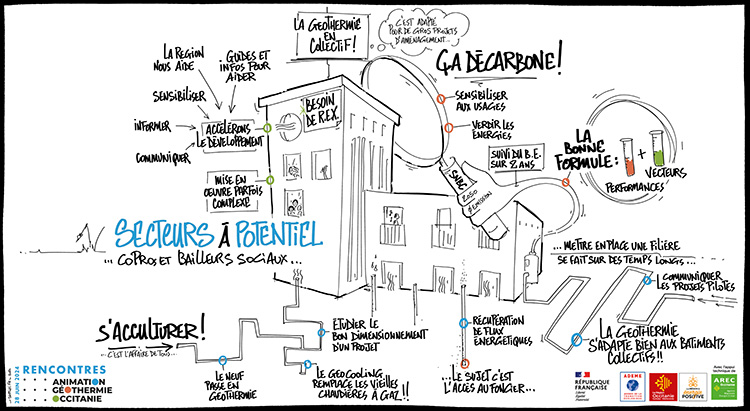 LA GÉOTHERMIE
EN
COLLECTIF !
C'EST ADAPTÉ
POUR DE GROS PROJETS
D'AMÉNAGEMENT...
ÇA DÉCARBONE !
LA RÉGION
NOUS AIDE
GUIDES ET
INFOS POUR
AIDER
SENSIBILISER
INFORMER
COMMUNIQUER
ACCÉLÉRONS
LE DÉVELOPPEMENT
BESOIN
DE R.EX.
MISE EN
OEUVRE PARFOIS
COMPLEXE
SENSIBILISER
AUX USAGES
VERDIR LES
ÉNERGIES
SUIVI DU B.E.
SUR 2 ANS
SNBC
2050
0 ÉMISSION
LA
BONNE
FORMULE :
+
VECTEURS
PERFORMANCES
SECTEURS À POTENTIEL
... COPROS ET BAILLEURS SOCIAUX ...
... METTRE EN PLACE UNE FILIÈRE
SE FAIT SUR DES TEMPS LONGS...
COMMUNIQUER
LES PROJETS PILOTES
S'ACCULTURER !
... C'EST L'AFFAIRE DE TOUS...
ETUDIER LE
BON DIMENSIONNEMENT
D'UN PROJET
RÉCUPÉRATION
DE FLUX
ENERGÉTIQUES
LA GÉOTHERMIE
S'ADAPTE BIEN AUX BATIMENTS
COLLECTIFS !!
LE NEUF
PASSE EN
GÉOTHERMIE
LE GEOCOOLING
REMPLACE LES VIEILLES
CHAUDIÈRES À GAZ !!
... LE SUJET C'EST
L'ACCÈS AU FONCIER...
28 JUIN 2024
RENCONTRES
ANIMATION
GÉOTHERMIE
OCCITANIE
RÉPUBLIQUE
FRANÇAISE
Liberté
Égalité
Fraternité
ADEME
La Région
Occitanie
POSITIVE
Avec l'appui
technique de
AREC
OCCITANIE